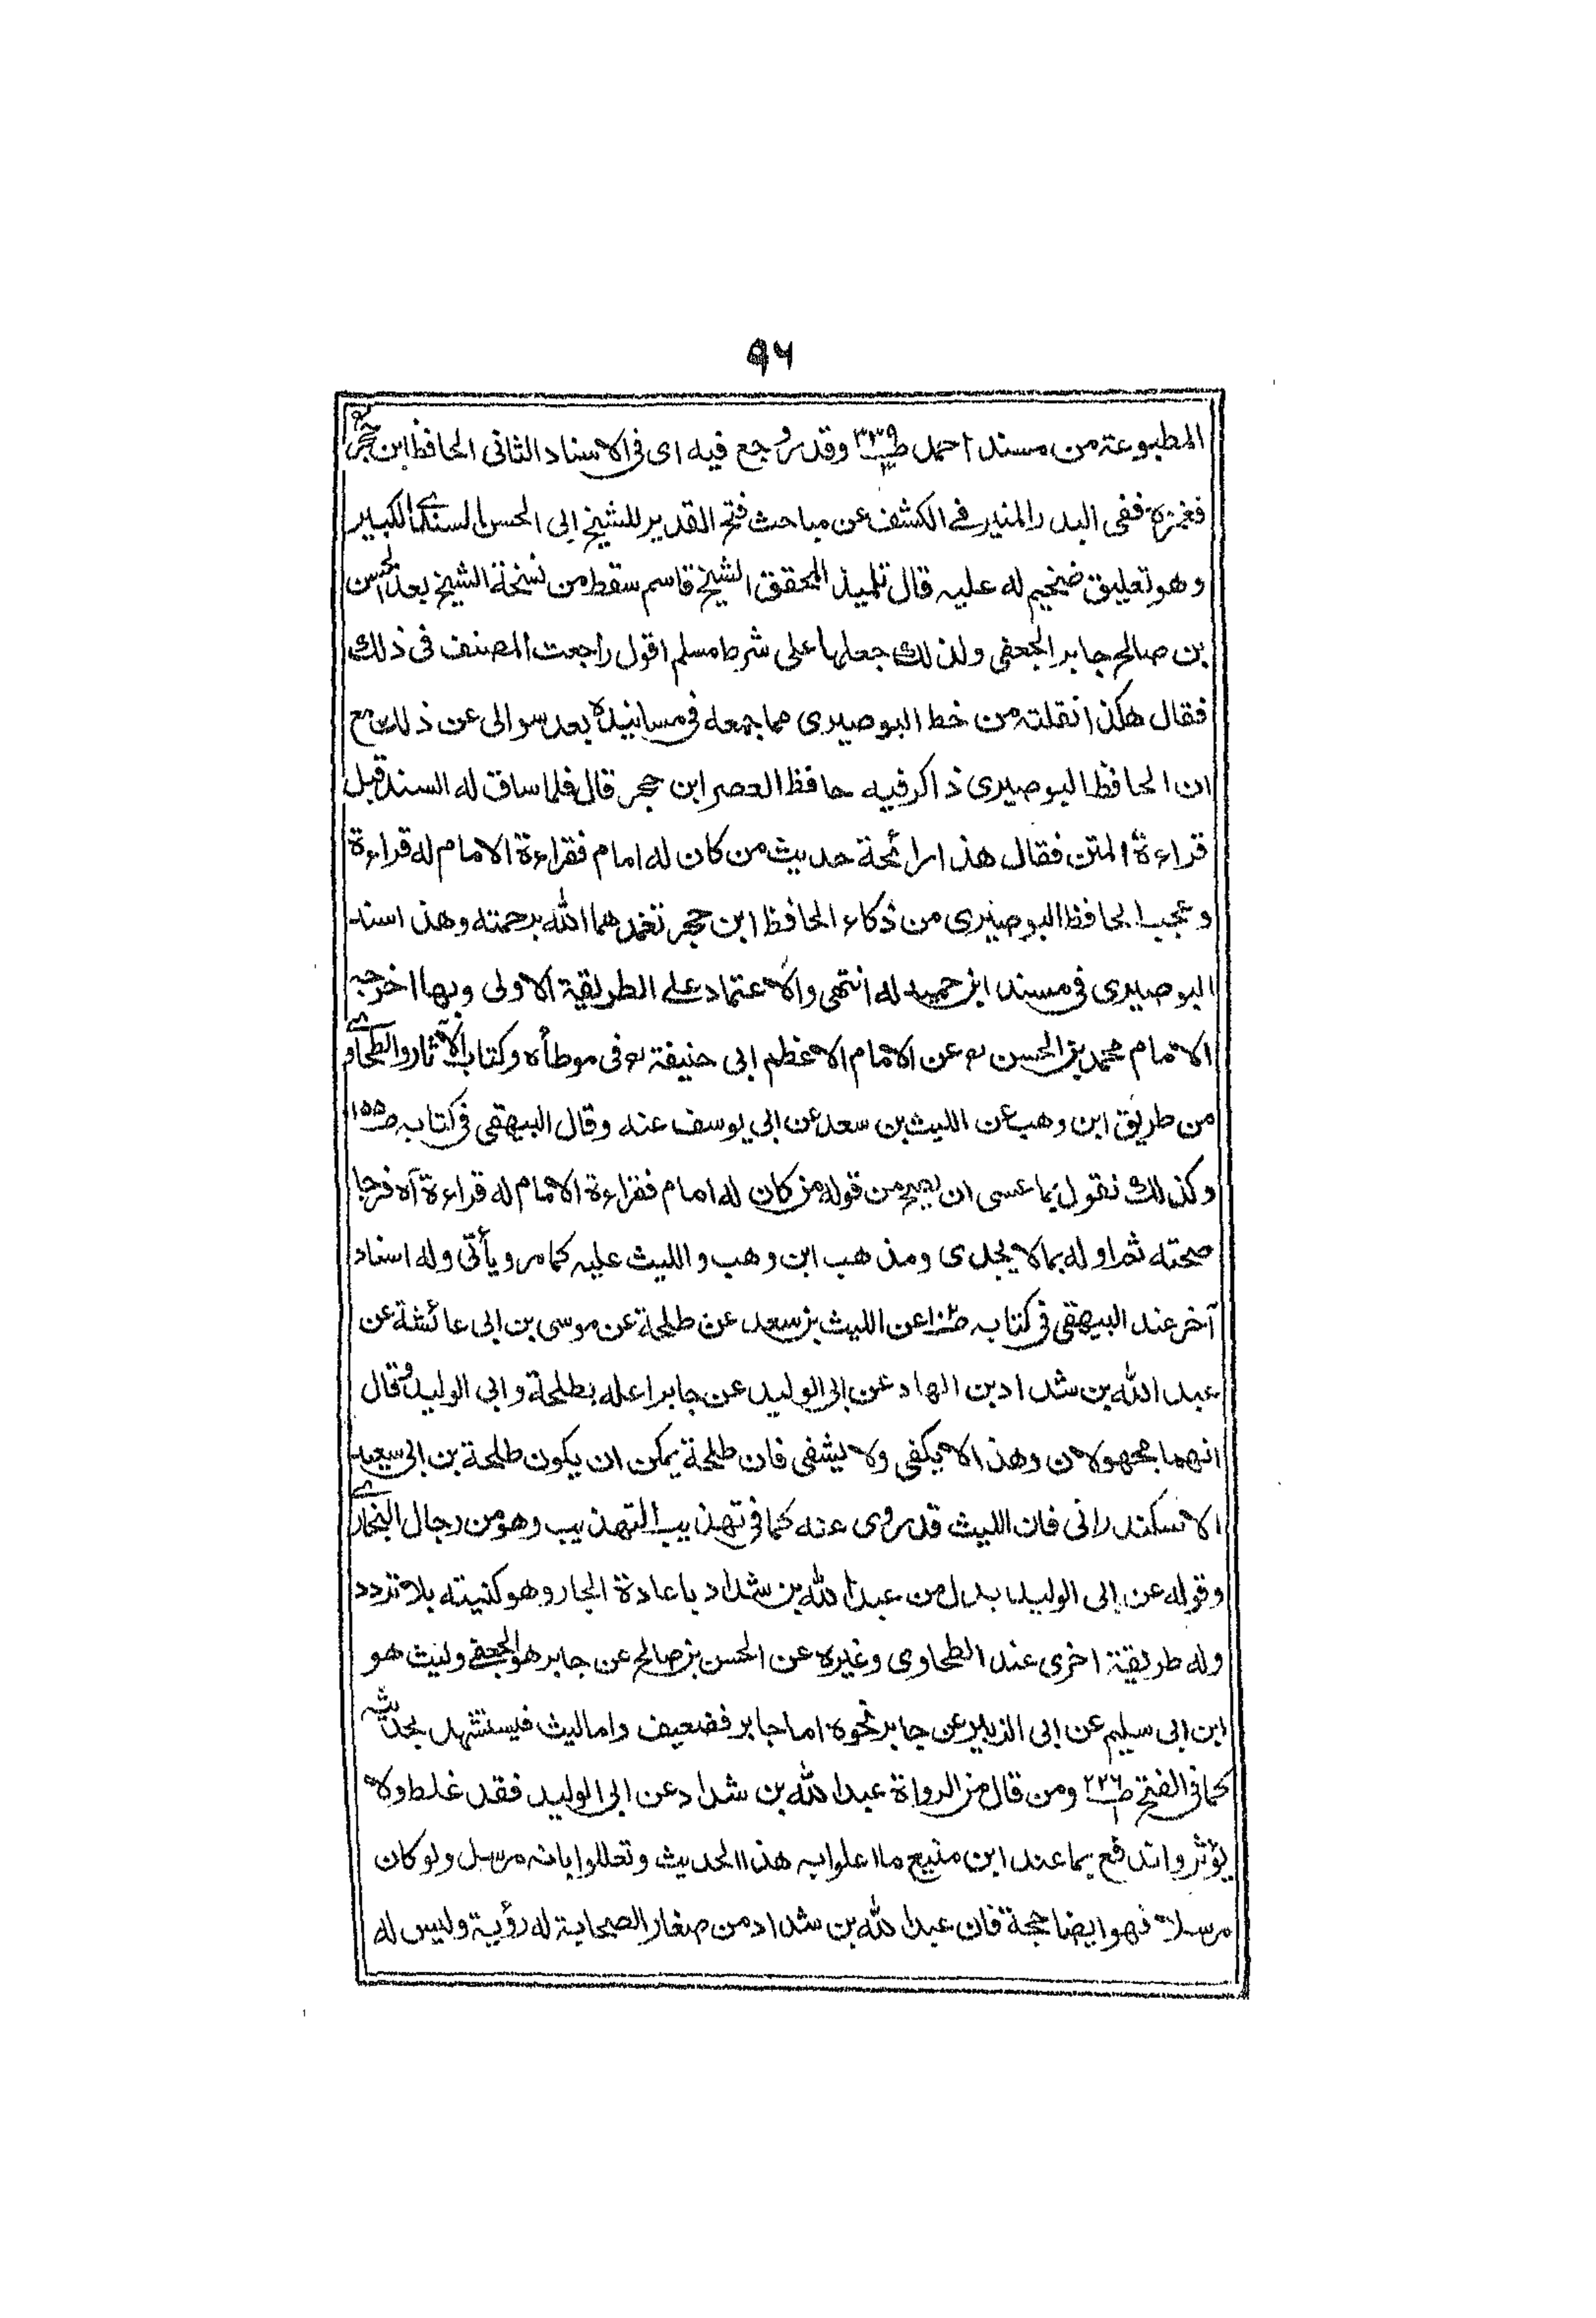 ٩٦
المطبوعة من مسند احمد ص ٣٣٩ ج ٣ وقد روجع فيه اى فى الاسناد الثانى الحافظ ابن حجر
فغمزه ففى البدر المنير فے الكشف عن مباحث فتح القدير للشيخ ابى الحسن السندے الكبير
وهو تعليق ضخيم له عليه قال تلميذ المحقق الشيخ قاسم سقط من نسخة الشيخ بعد الحسن
بن صالح جابر الجعفى ولذلك جعلها على شرط مسلم اقول راجعت المصنف فى ذلك
فقال هكذا نقلته من خط البوصيرى مما جمعه فى مسانيده بعد سوالى عن ذلك مع
ان الحافظ البوصيرى ذاكر فيه حافظ العصر ابن حجر قال فلما ساق له السند قبل
قراءة المتن فقال هذا رائحة حديث من كان له امام فقراءة الامام له قراءة
وعجب الحافظ البوصيرى من ذكاء الحافظ ابن حجر تغمدهما الله برحمته وهذا سند
البوصيرى فى مسند ابن حميد له انتهى والاعتماد علے الطريقة الاولى وبها اخرجه
الامام محمد بن الحسن رح عن الامام الاعظم ابى حنيفة رح فى موطأه وكتاب الآثار والطحاوے
من طريق ابن وهب عن الليث بن سعد عن ابى يوسف عنه وقال البيهقى فى كتابه ص ١٥٥
وكذلك نقول بما عسى ان يصح من قوله من كان له امام فقراءة الامام له قراءة آه فرجا
صحته ثم اوله بما لا يجدى ومذهب ابن وهب والليث عليه كما مر ويأتى وله اسناد
آخر عند البيهقى فى كتابه عن الليث بن سعد عن طلحة عن موسى بن ابى عائشة عن
عبد الله بن شداد بن الهاد عن ابى الوليد عن جابر اعله بطلحة وابى الوليد وقال
انهما مجهولان وهذا لا يكفى ولا يشفى فان طلحة يمكن ان يكون طلحة بن ابى سعيد
الاسكندرانى فان الليث قد روى عنه كما فى تهذيب التهذيب وهو من رجال البخارے
وقوله عن ابى الوليد بدل من عبد الله بن شداد باعادة الجار وهو كنيته بلا تردد
وله طريقة اخرى عند الطحاوى وغيره عن الحسن بن صالح عن جابر هو الجعفے وليث هو
ابن ابى سليم عن ابى الزبير عن جابر نحوه اما جابر فضعيف واما ليث فيستشهد بحديثه
كما فى الفتح ص ٢٢٦ ج ١ ومن قال من الرواة عبد الله بن شداد عن ابى الوليد فقد غلط ولا
يؤثر واندفع بما عند ابن منيع ما اعلوا به هذا الحديث وتعللوا بانه مرسل ولو كان
مرسلا فهو ايضا حجة فان عبد الله بن شداد من صغار الصحابة له رؤية وليس له